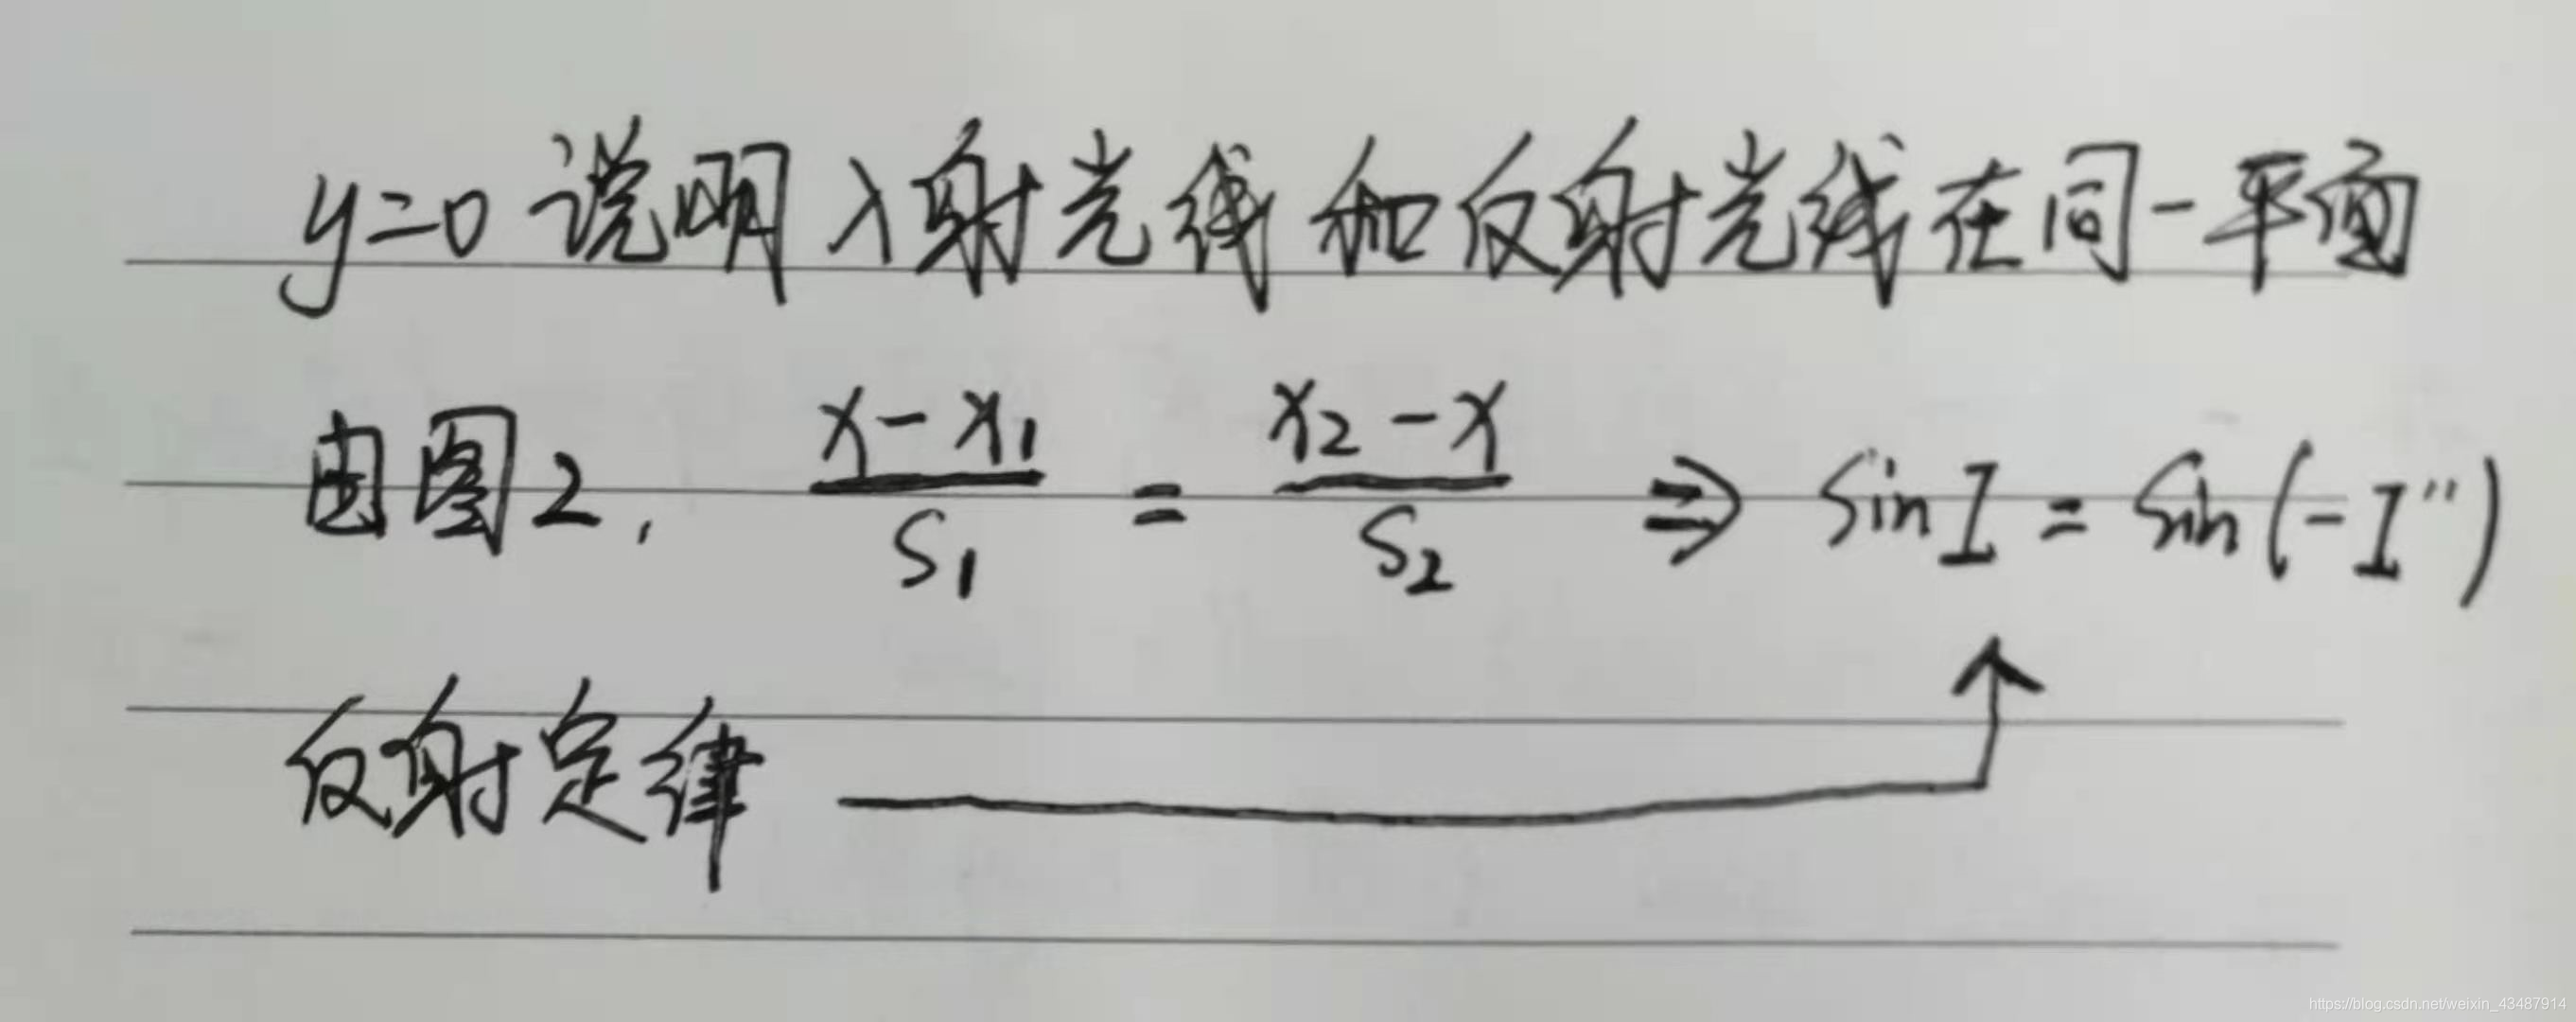 y=0 说明入射光线和反射光线在同一平面
由图2, \frac{x-x_1}{S_1} = \frac{x_2-x}{S_2} ⇒ sin I = sin(-I'')
反射定律
https://blog.csdn.net/weixin_43487914